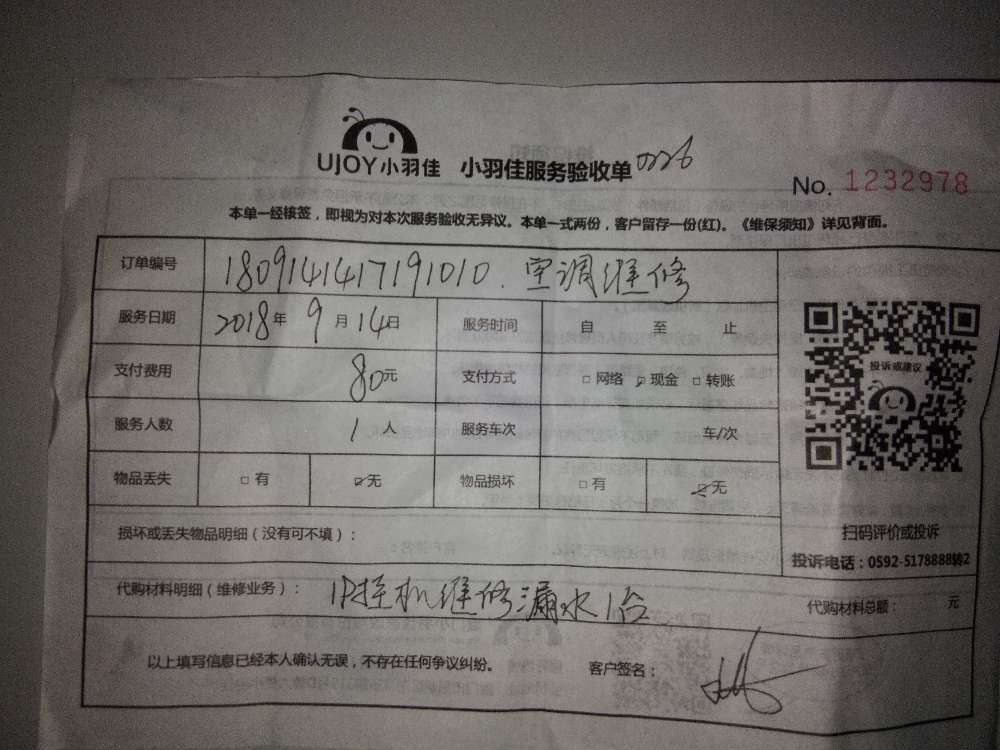 UJOY小羽佳 小羽佳服务验收单 0226
No. 1232978
本单一经核签，即视为对本次服务验收无异议。本单一式两份，客户留存一份(红)。《维保须知》详见背面。
订单编号 1809141417191010. 空调维修
服务日期 2018年 9月 14日 服务时间 自 至 止
支付费用 80元 支付方式 □网络 ☑现金 □转账
投诉或建议
服务人数 1人 服务车次 车/次
物品丢失 □有 ☑无 物品损坏 □有 ☑无
损坏或丢失物品明细（没有可不填）：
扫码评价或投诉
投诉电话：0592-5178888转2
代购材料明细（维修业务）： 1P挂机维修漏水1台 代购材料总额： 元
以上填写信息已经本人确认无误，不存在任何争议纠纷。 客户签名：